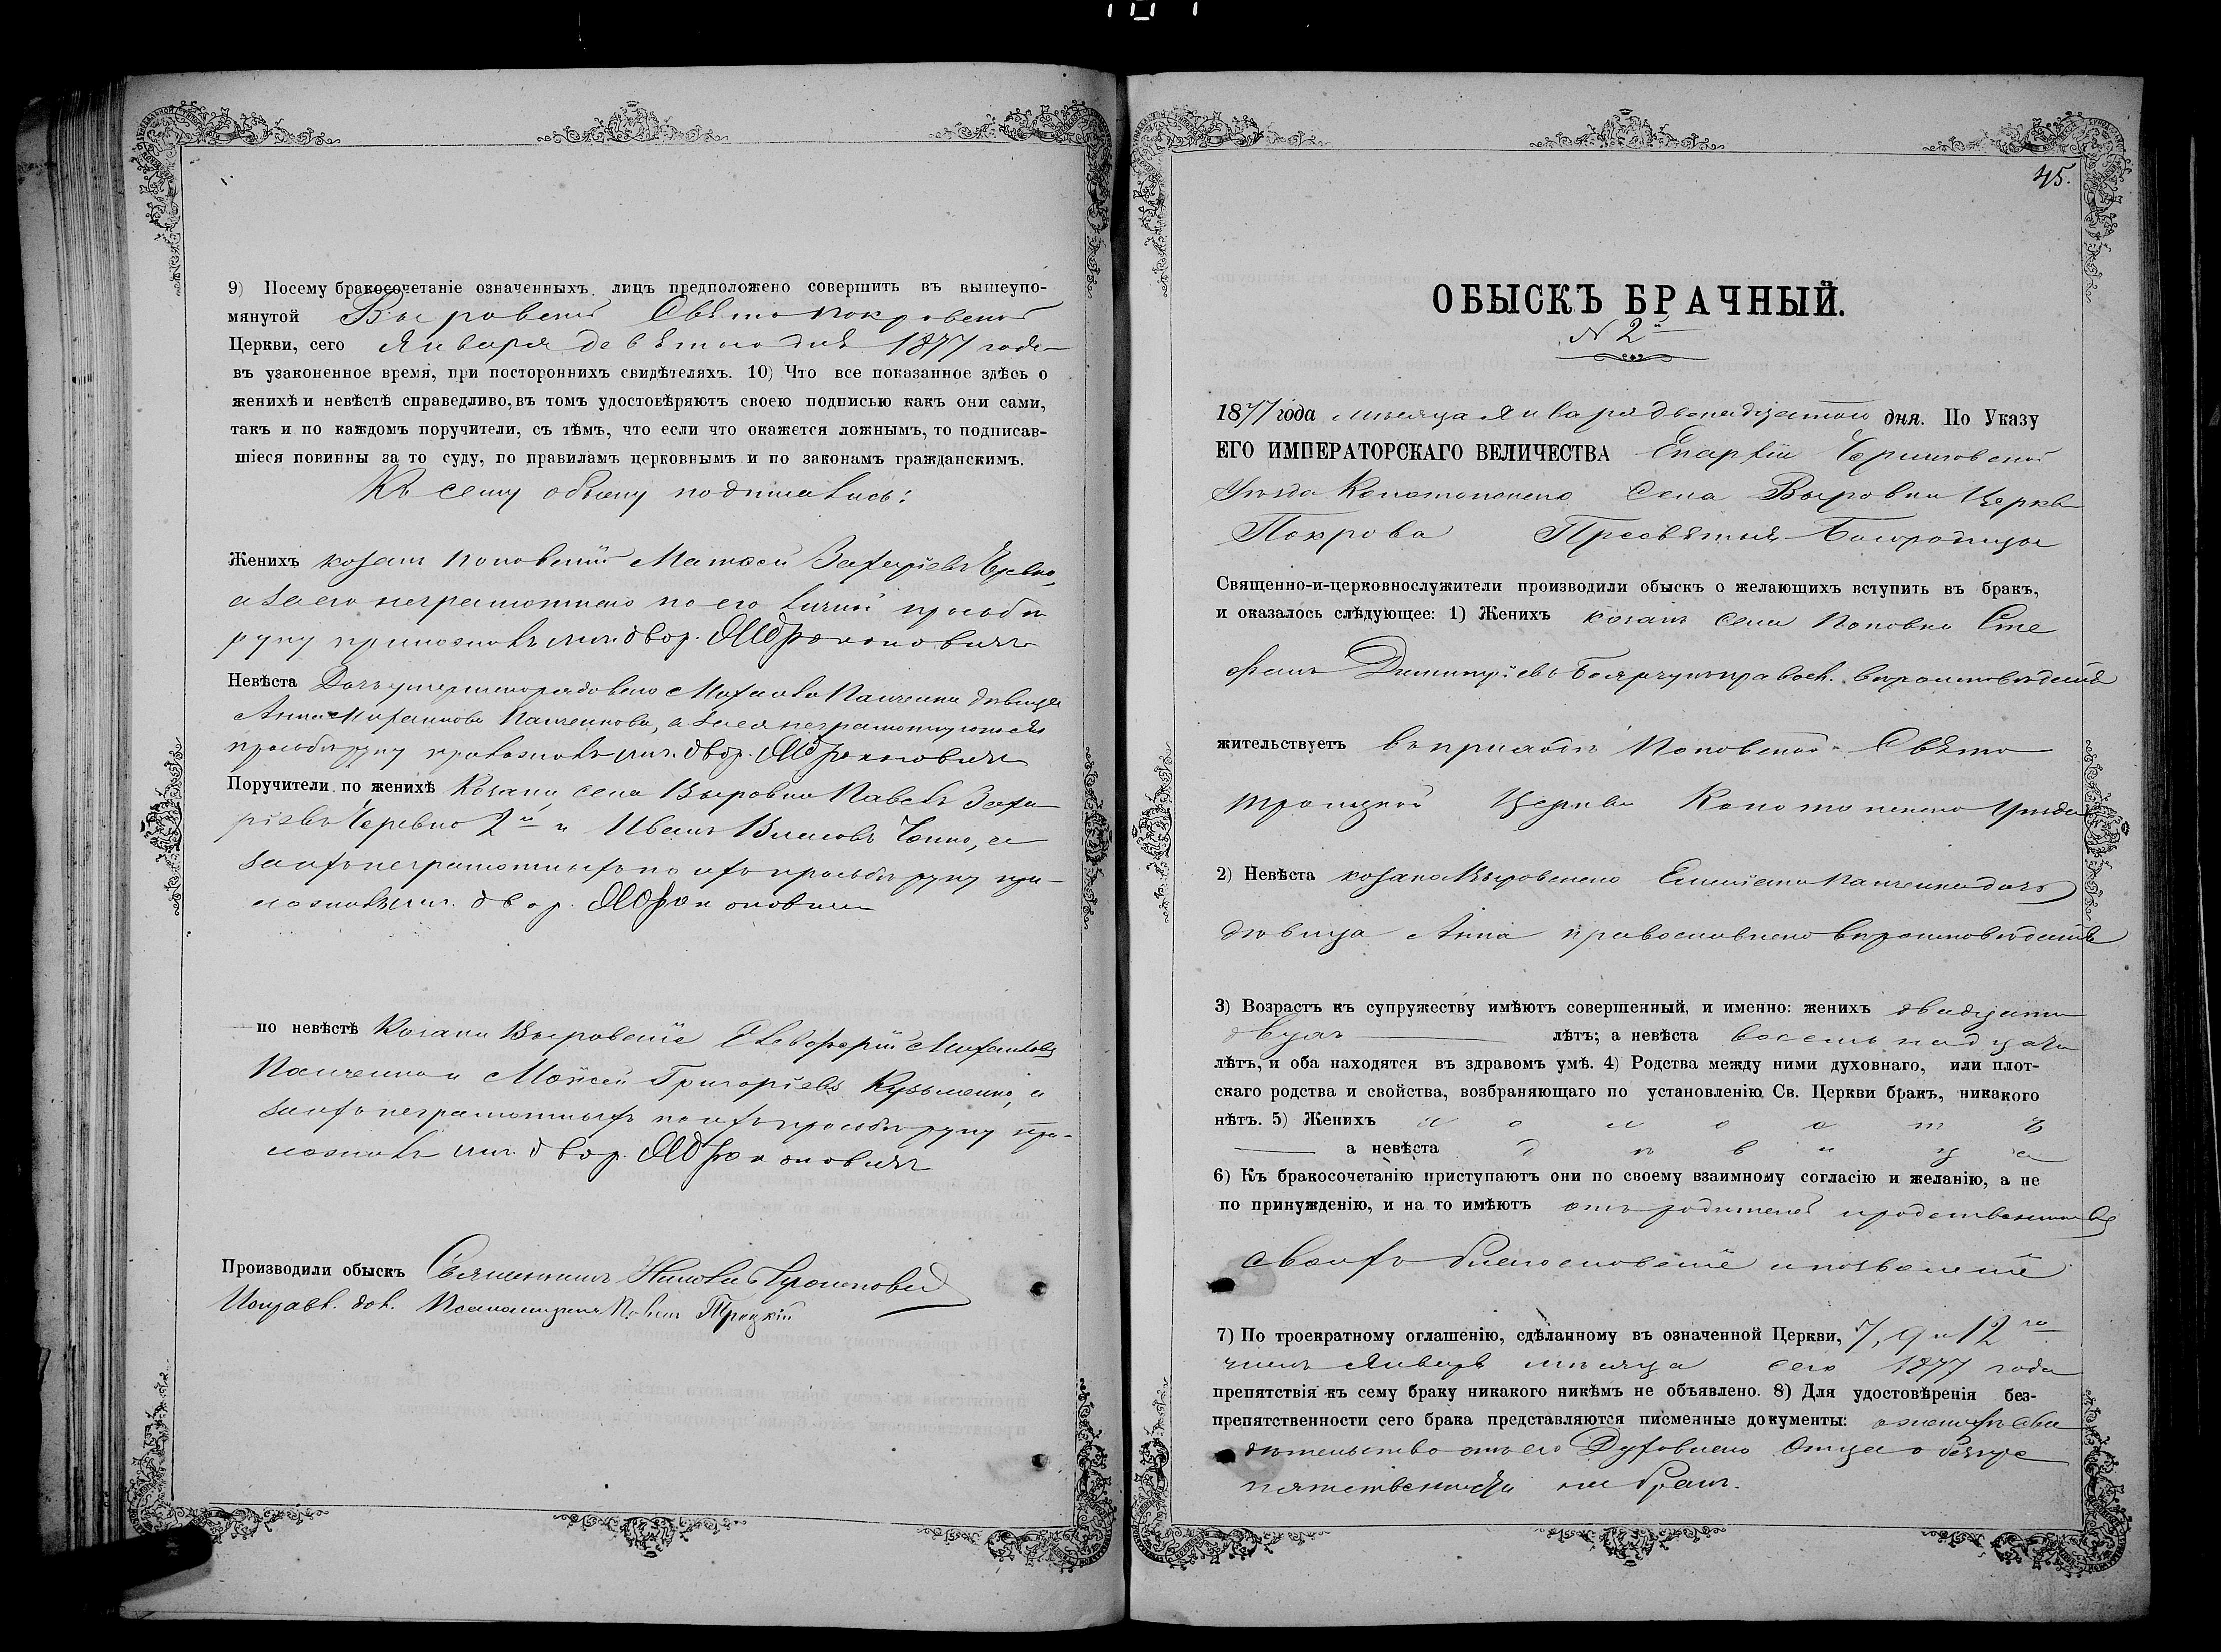 9) Посему бракосочетаніе означенныхъ лицъ предположено совершить въ вышеупо-
мянутой Выровской Свято Покровской
Церкви, сего Января девятого дня 1877 года
въ узаконенное время, при постороннихъ свидѣтеляхъ. 10) Что все показанное здѣсь о
женихѣ и невѣстѣ справедливо, въ томъ удостовѣряютъ своею подписью какъ они сами,
такъ и по каждомъ поручители, съ тѣмъ, что если что окажется ложнымъ, то подписав-
шіеся повинны за то суду, по правиламъ церковнымъ и по законамъ гражданскимъ.
Къ сему обыску подписались:
Женихъ козакъ Поповскій Матвей Захаріевъ
а за его неграмотного по его личной прозьбѣ
руку приложилъ двор.
Невѣста Дочь Михаила Панченка дѣвица
Анна Михаилова Панченкова, а за ея неграмотную по ея
прозьбѣ руку приложилъ двор.
Поручители по женихѣ Козаки села Выровки Павелъ Заха-
ріевъ Черевко 2й и Иванъ Власовъ
за ихъ неграмотныхъ по ихъ прозьбѣ руку при-
ложилъ двор.
по невѣстѣ Козаки Выровскіе Михаиловъ
Панченко и Моисей Григоріевъ Кузьменко, а
за ихъ неграмотныхъ по ихъ прозьбѣ руку при-
ложилъ двор.
Производили обыскъ Священникъ
Исправл. дол. Псаломщика Павелъ Троцкій
45.
ОБЫСКЪ БРАЧНЫЙ.
N 2й
1877 года мѣсяца Января двенадцатого дня. По Указу
ЕГО ИМПЕРАТОРСКАГО ВЕЛИЧЕСТВА Епархіи Черниговской
Уѣзда Конотопского Села Выровки Церкви
Покрова Пресвятыя Богородицы
Священно-и-церковнослужители производили обыскъ о желающихъ вступить въ бракъ,
и оказалось слѣдующее: 1) Женихъ козакъ села Поповки Сте
фанъ Димитріевъ правосл. вѣроисповѣданія
жительствуетъ въ приходѣ Поповской Свято
Троицкой Церкви Конотопского Уѣзда
2) Невѣста козака Выровского Емеліана Панченка дочь
дѣвица Анна православного вѣроисповѣданія
3) Возрастъ къ супружеству имѣютъ совершенный, и именно: женихъ двадцати
двухъ лѣтъ; а невѣста восемнадцати
лѣтъ, и оба находятся въ здравомъ умѣ. 4) Родства между ними духовнаго, или плот-
скаго родства и свойства, возбраняющаго по установленію Св. Церкви бракъ, никакого
нѣтъ. 5) Женихъ х о л о с т ъ
а невѣста д ѣ в и ц а
6) Къ бракосочетанію приступаютъ они по своему взаимному согласію и желанію, а не
по принужденію, и на то имѣютъ отъ родителей и родственниковъ
своихъ благословеніе и позволеніе
7) По троекратному оглашенію, сдѣланному въ означенной Церкви, 7, 9 и 12го
чиселъ Январь мѣсяца сего 1877 года
препятствія къ сему браку никакого никѣмъ не объявлено. 8) Для удостовѣренія без-
препятственности сего брака представляются писменные документы: о женихѣ сви
дѣтельство отъ его Духовного Отца о безпре
пятственности на бракъ.